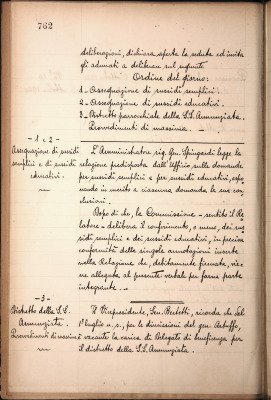 762
deliberazioni, dichiara aperta la seduta ed invita
gli adunati a deliberare sul seguente
Ordine del giorno:
1 - Assegnazione di sussidi semplici:
2 - Assegnazione di sussidi educativi.
3 - Distretto parrocchiale della SS. Annunziata.
Provvedimenti di massima. -
- 1 e 2 -
Assegnazione di sussidi
semplici e di sussidi
educativi.
L'Amministratore sig. Gen. Spingardi legge la
relazione predisposta dall'Ufficio sulle domande
per sussidi semplici e per sussidi educativi, espo
nendo in merito a ciascuna domanda le sue con
clusioni.
Dopo di che, la Commissione - sentito il Re
latore - delibera il conferimento, o meno, dei sus
sidi semplici e dei sussidi educativi, in precisa
conformità delle singole annotazioni inserte
nella Relazione che, debitamente firmata, vie
ne allegata al presente verbale per farne parte
integrante. -
- 3 -
Distretto della SS.
Annunziata.
Provvedimenti di massima
Il Vicepresidente, Gen. Bertotti, ricorda che dal
1° luglio u. s., per le dimissioni del gen.
è vacante la carica di Delegato di beneficenza per
il distretto della SS. Annunziata.